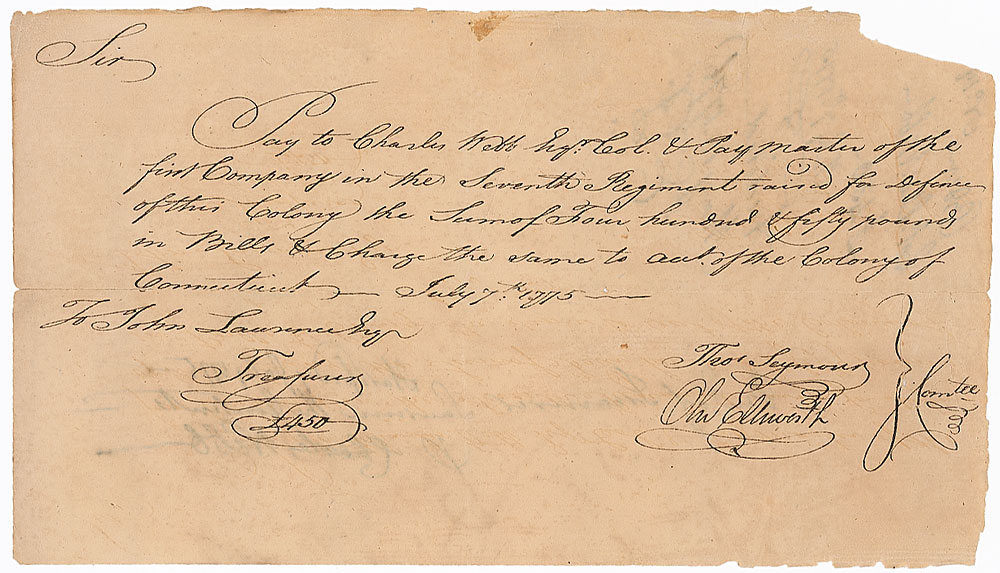 Sir
Pay to Charles Webb Esqr. Col. & Pay Master of the
first Company in the Seventh Regiment raised for Defence
of this Colony the Sum of Four hundred & fifty pounds
in Bills & Charge the same to acct. of the Colony of
Connecticut — July 7th. 1775 —
To John Lawrence Esqr
Treasurer
£450
Thos Seymour
Olivr Ellsworth
Comtee